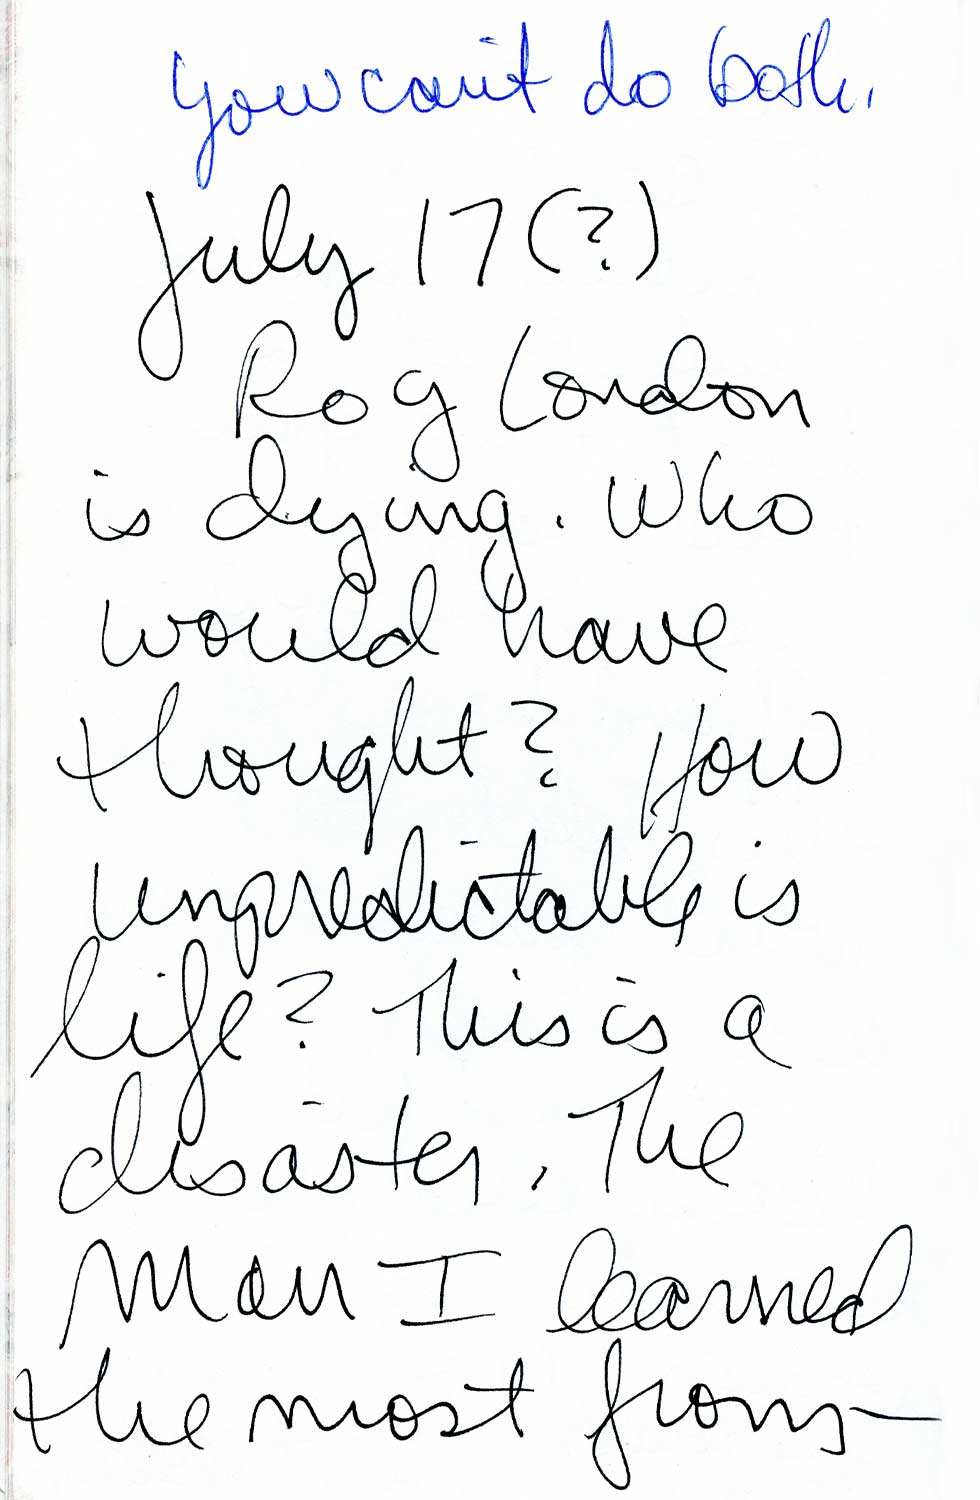 you can't do both.
July 17 (?)
Rog London
is dying. Who
would have
thought? How
unpredictable is
life? This is a
disaster. The
man I learned
the most from—